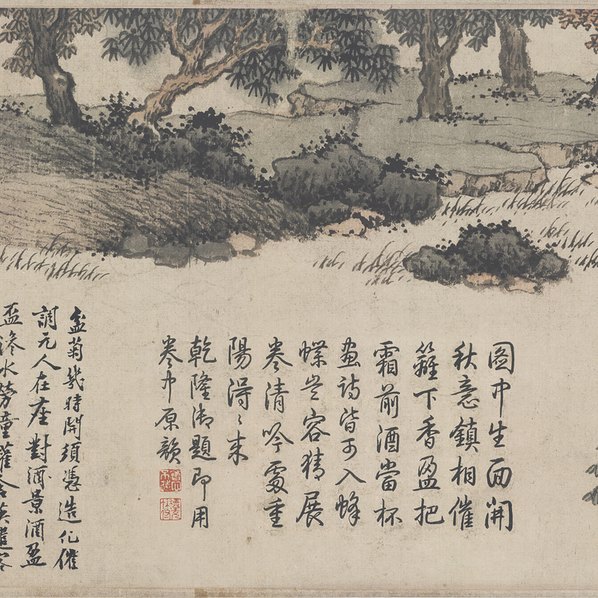 圖中生面開
秋意鎮相催
籬下香盈把
霜前酒當杯
畫詩皆可入蜂
蝶豈容猜展
卷清吟處重
陽得得來
乾隆御題即用
卷中原韻
盆菊幾時開須憑造化催
調元人在座對酒景酒盈